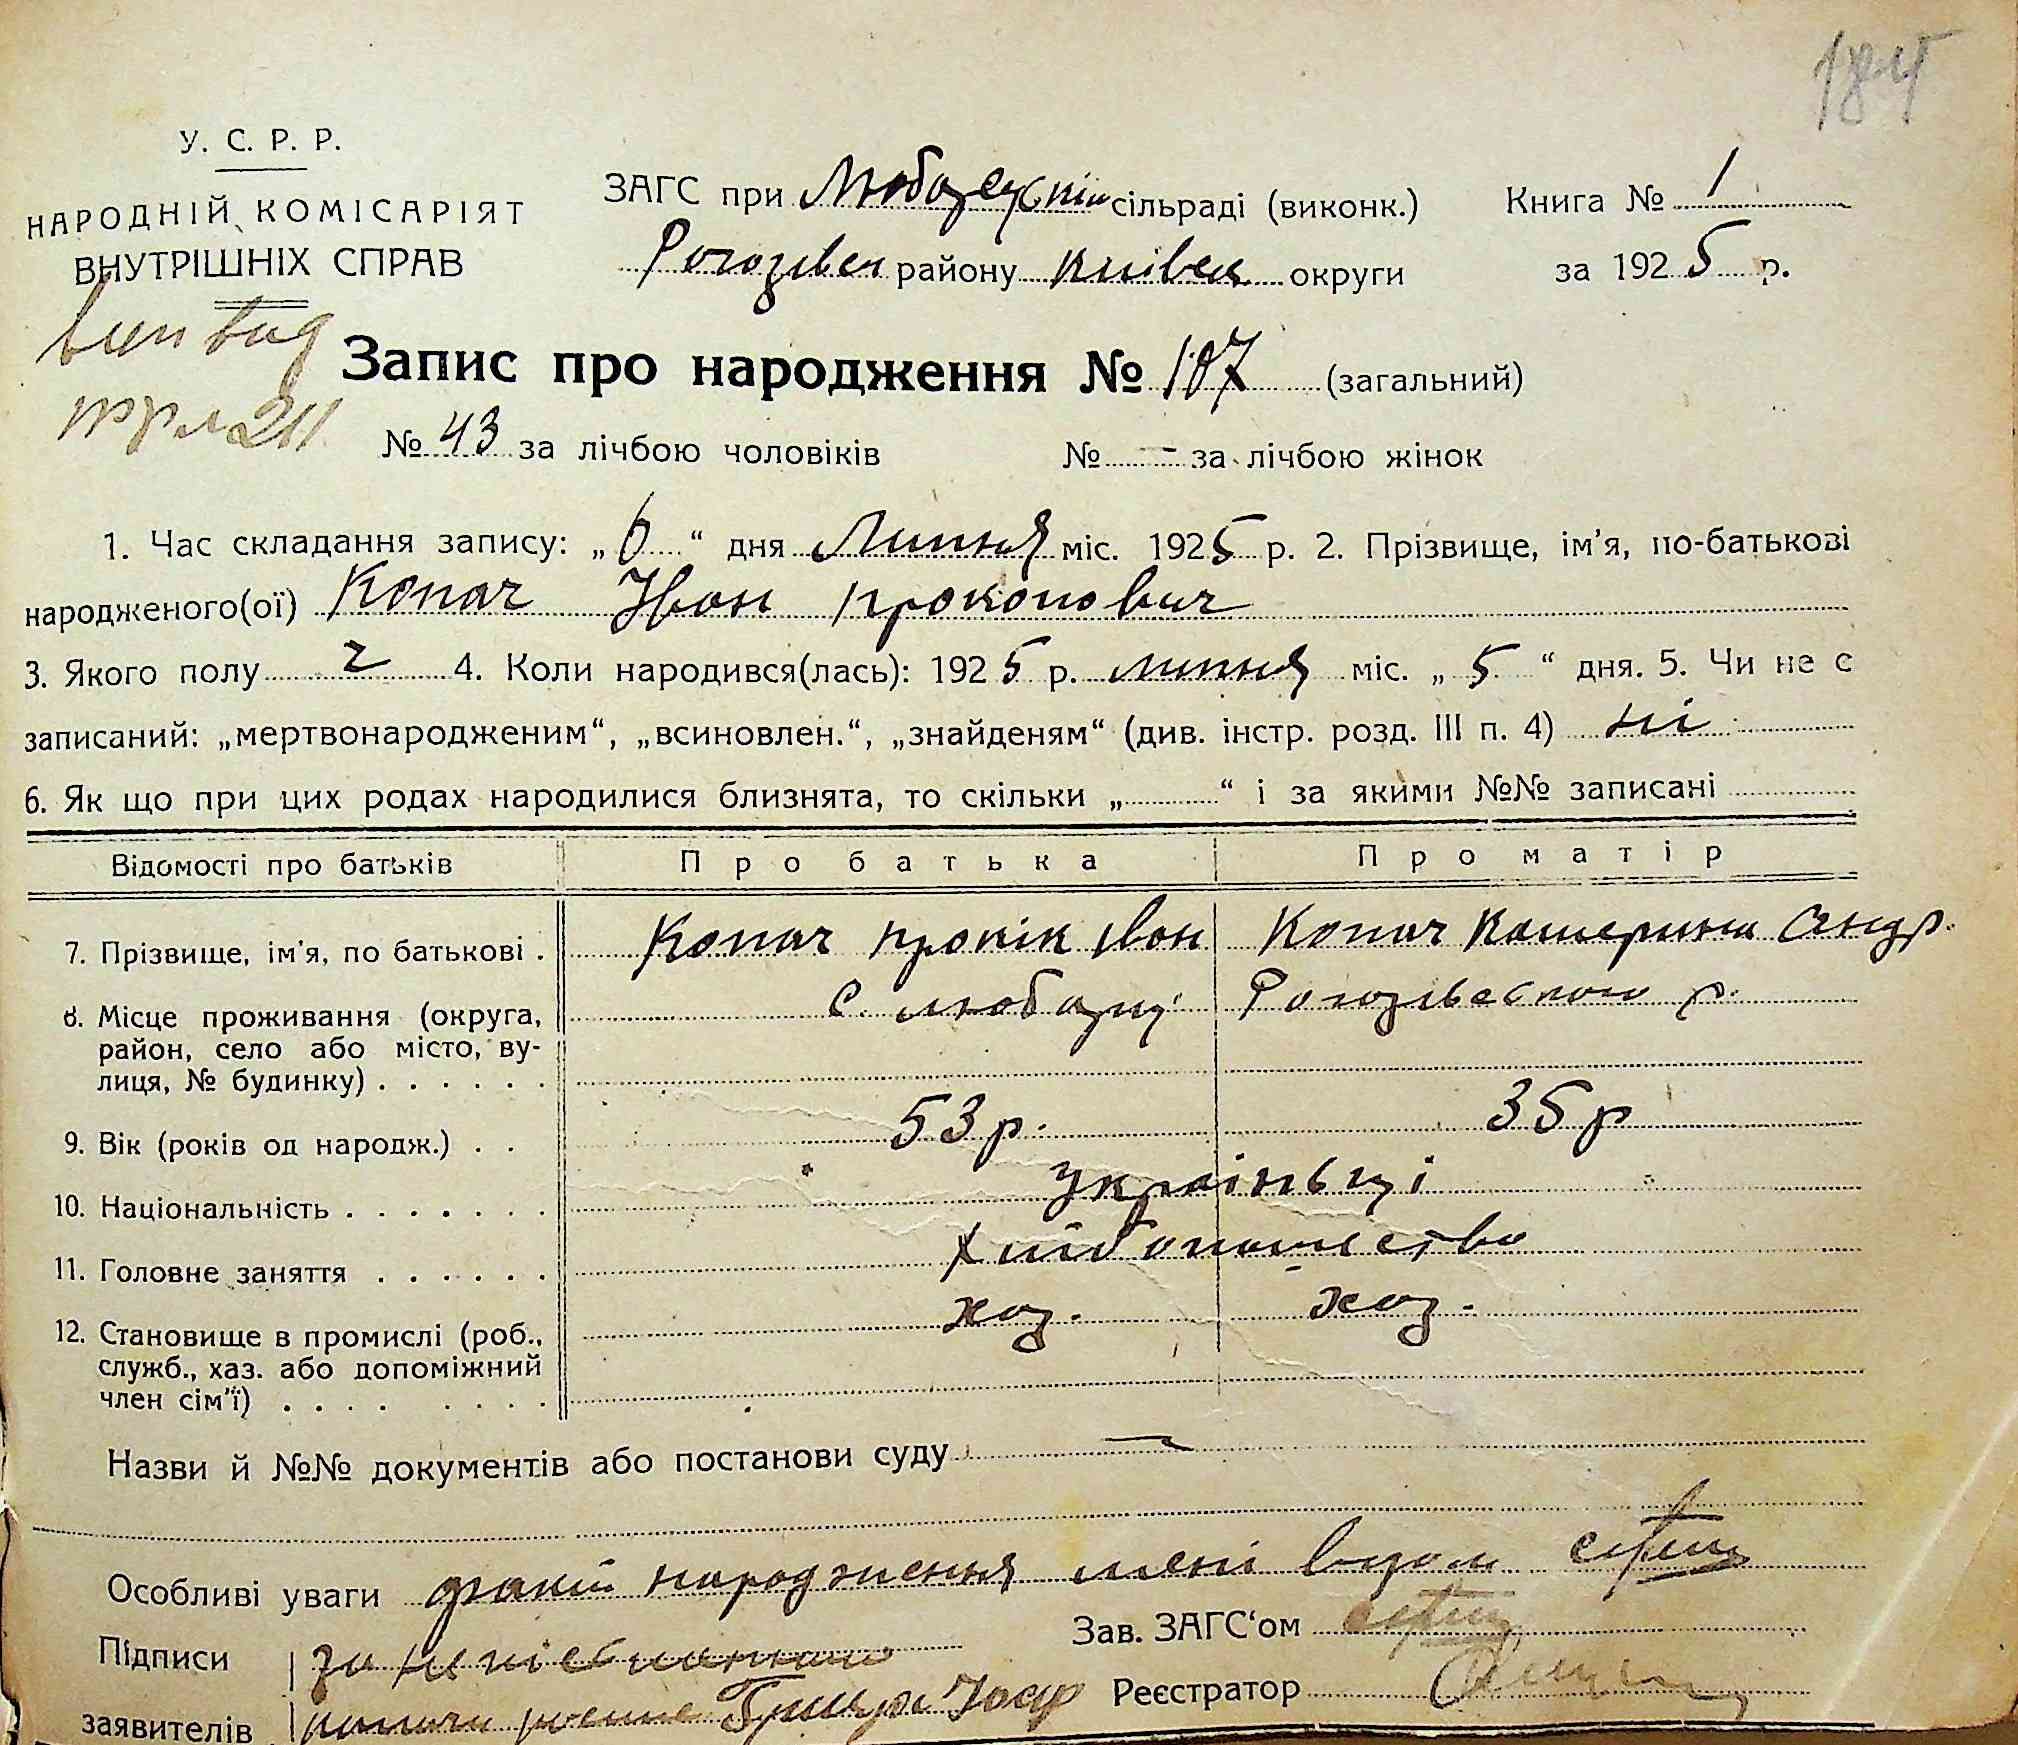 У. С. Р. Р.
НАРОДНІЙ КОМІСАРІЯТ
ВНУТРІШНІХ СПРАВ
ЗАГС при сільраді (виконк.)
Рогозівск району Київск округи
Книга № 1
за 1925 р.
Запис про народження № 107 (загальний)
№ 43 за лічбою чоловіків № — за лічбою жінок
1. Час складання запису: „6“ дня Липня міс. 1925 р. 2. Прізвище, ім'я, по-батькові
народженого(ої) Копач Іван Прокопович
3. Якого полу ч 4. Коли народився(лась): 1925 р. липня міс. „5“ дня. 5. Чи не є
записаний: „мертвонародженим“, „всиновлен.“, „знайденям“ (див. інстр. розд. III п. 4) ні
6. Як що при цих родах народилися близнята, то скільки „ “ і за якими №№ записані
Відомості про батьків Про батька Про матір
7. Прізвище, ім'я, по батькові . Копач Прокіп Іван Копач Катерина Андр.
8. Місце проживання (округа, с. Любарці Рогозівського р.
район, село або місто, ву-
лиця, № будинку) . . . . . .
9. Вік (років од народж.) . . 53 р. 35 р
10. Національність . . . . . . . україньці
11. Головне заняття . . . . . . хлібопашество
12. Становище в промислі (роб., хаз. хаз.
служб., хаз. або допоміжний
член сім'ї) . . . . . . . .
Назви й №№ документів або постанови суду —
Особливі уваги факт народження мені
Підписи за
заявителів
Зав. ЗАГС'ом
Реєстратор